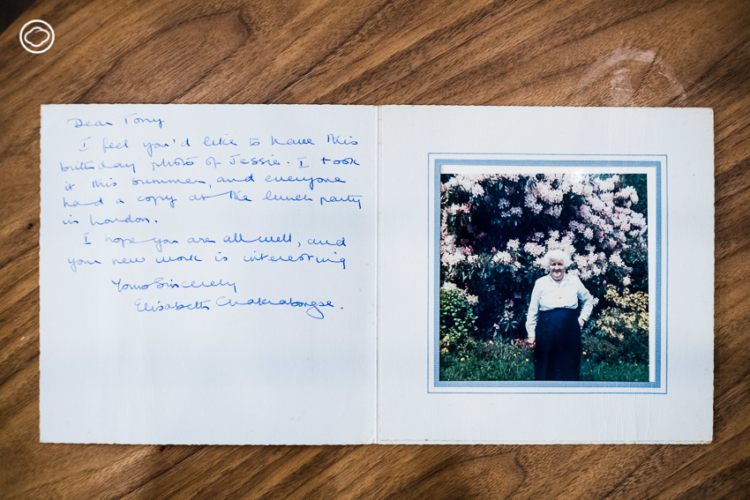 Dear Tony
I feel you'd like to have this
birthday photo of Jessie. I took
it this summer, and everyone
had a copy at the lunch party
in London.
I hope you are all well, and
your new work is interesting
Yours Sincerely
Elisabeth Chakrabongse.